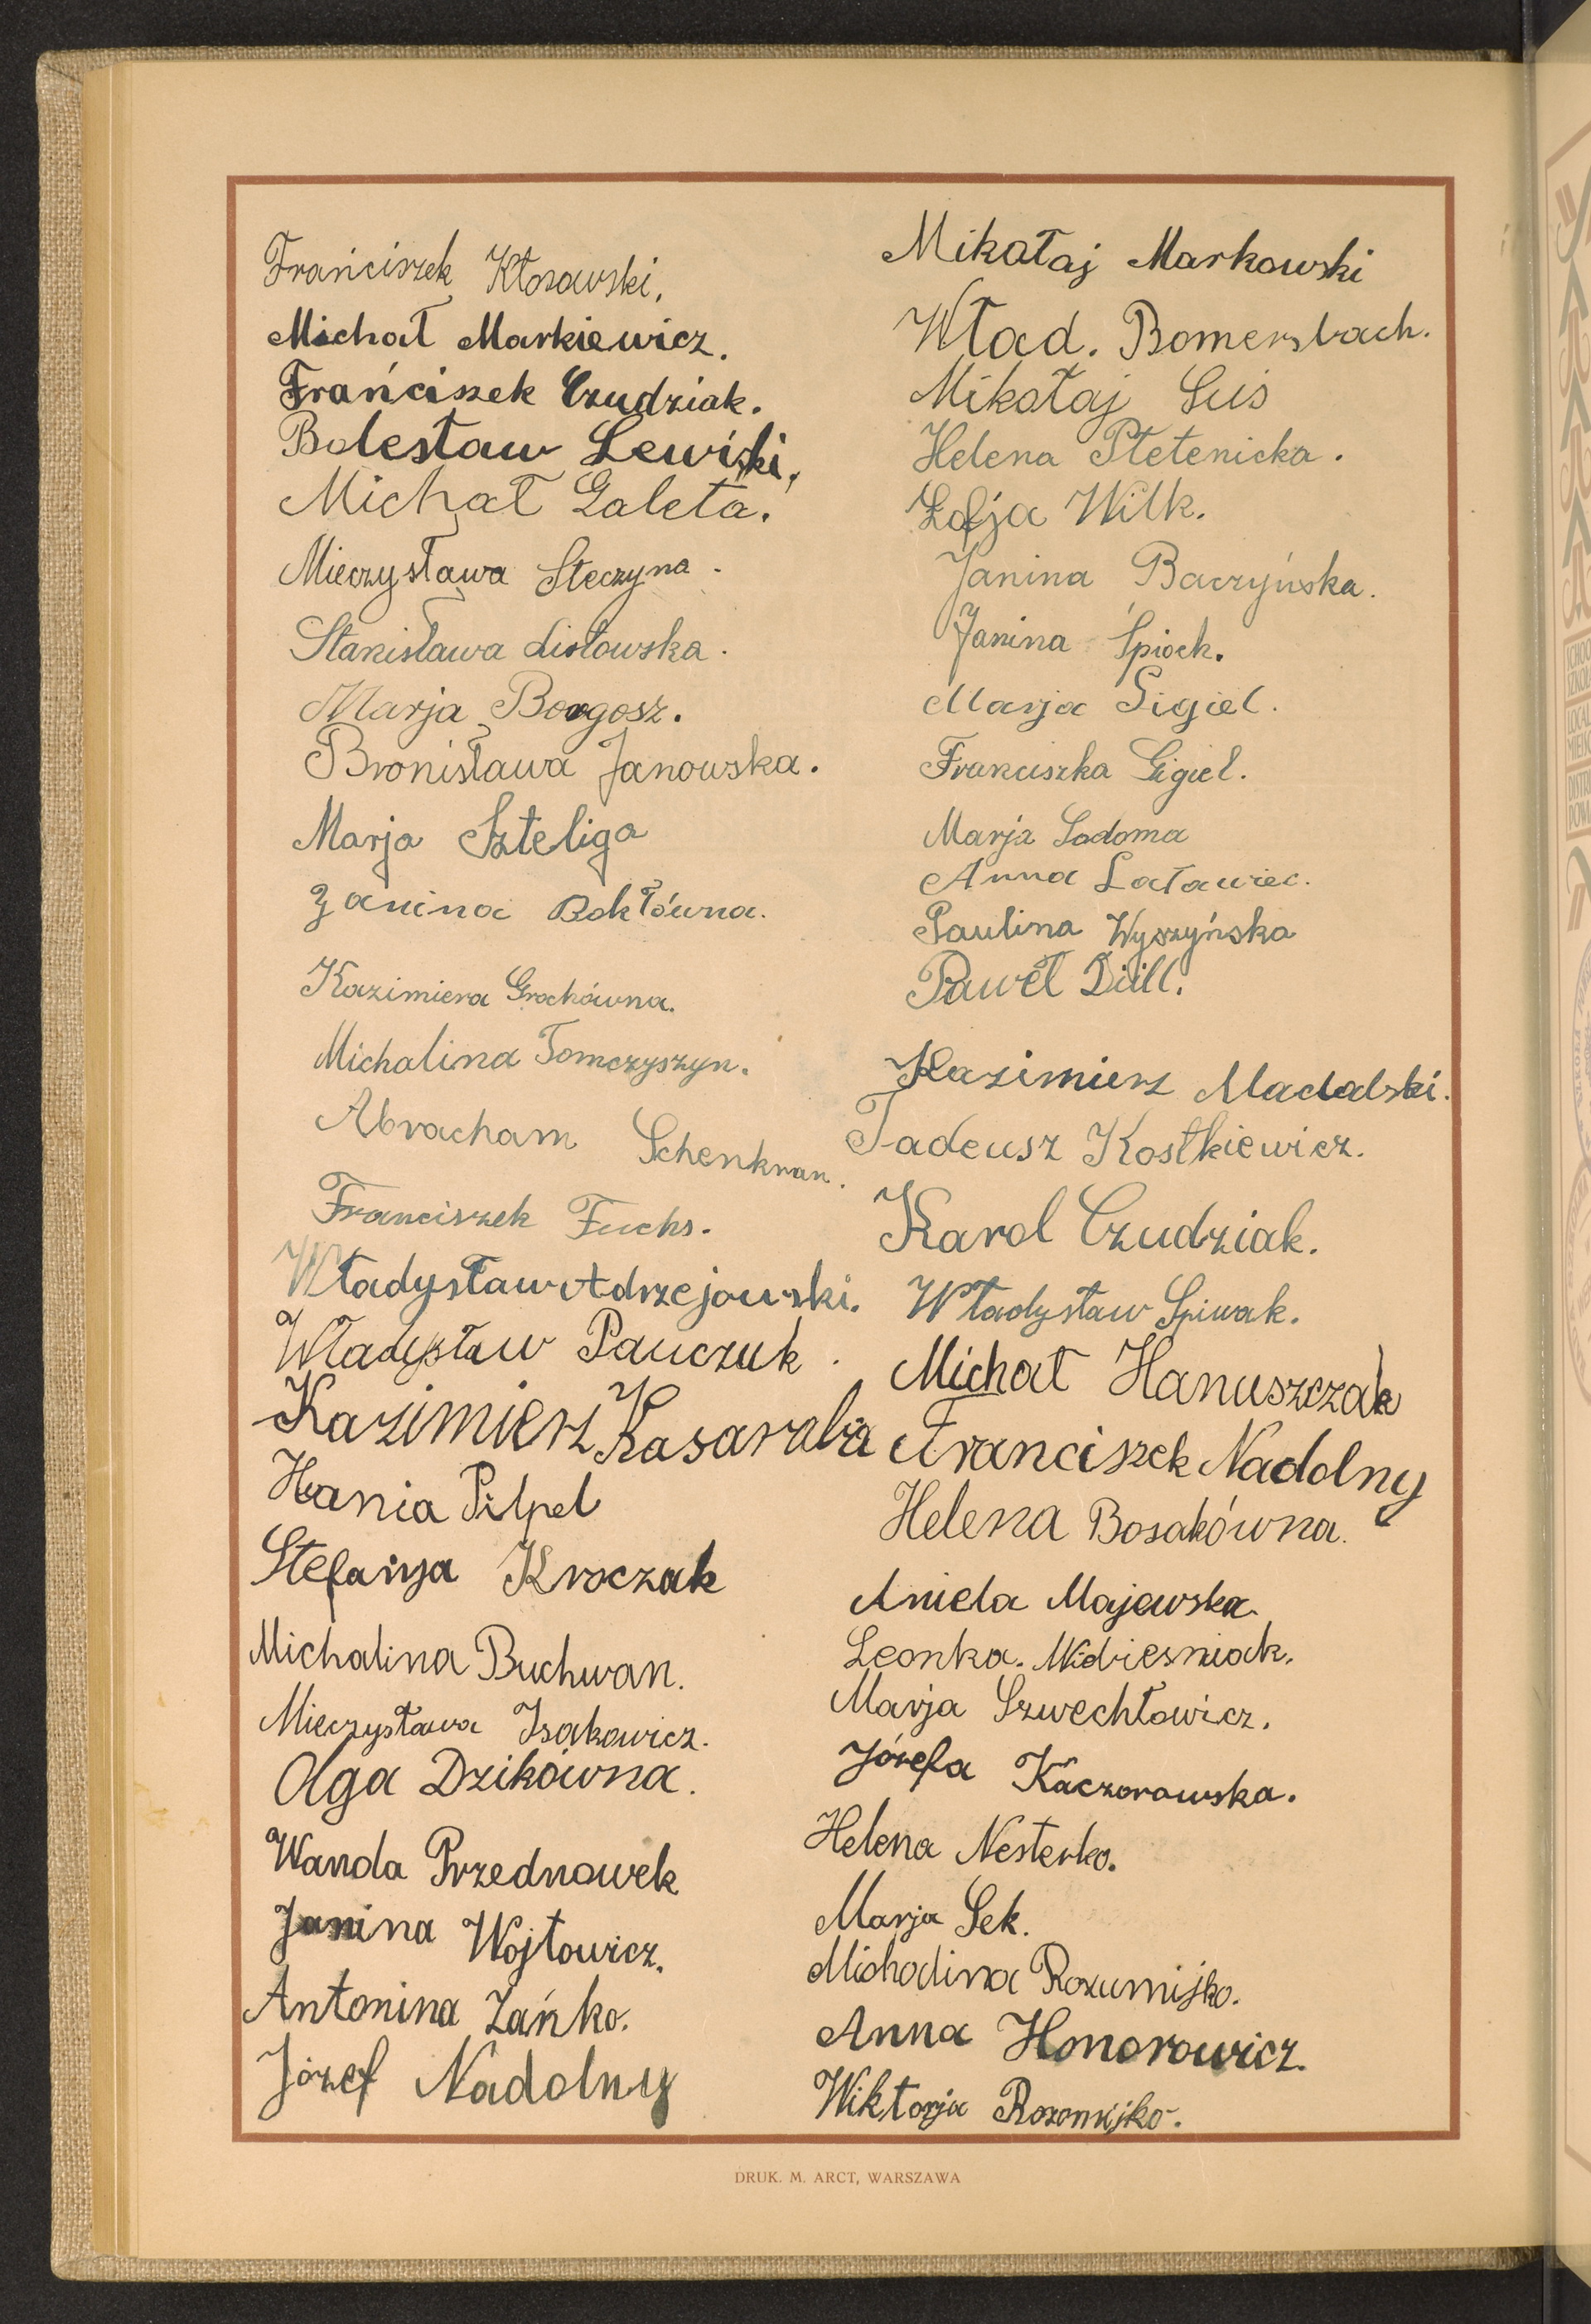 Frańciszek Kłosowski.
Michał Markiewicz.
Frańciszek Czudziak.
Bolesław Lewiski.
Michał Galeta.
Mieczysława Steczyna.
Stanisława Listowska.
Marja Borgosz.
Bronisława Janowska.
Marja Szteliga
Janina Bokłówna.
Kazimiera Grochówna.
Michalina Tomczyszyn.
Abracham Schenkman.
Franciszek Fuchs.
Władysław Adrzejowski.
Władysław Pauczuk.
Kazimierz Kasaraba
Hania Pilpel
Stefanja Kroczak
Michalina Buchwan.
Mieczysława Isakowicz.
Olga Dzikówna.
Wanda Przednowek
Janina Wojtowicz.
Antonina Zańko.
Józef Nadolny
Mikołaj Markowski
Wład. Bomersbach.
Mikołaj Suś
Helena Pletenicka.
Zofja Wilk.
Janina Baczyńska.
Janina Śpiock.
Marja Gigiel.
Franciszka Gigiel.
Marja Sodoma
Anna Latawiec.
Paulina Wyszyńska
Paweł Düll.
Kazimierz Madalski.
Tadeusz Kostkiewicz.
Karol Czudziak.
Władysław Spiwak.
Michał Hanuszczak
Franciszek Nadolny
Helena Bosakówna.
Aniela Majewska.
Leonka.
Marja Szwechłowicz.
Józefa Kaczorowska.
Helena Nesterko.
Marja Sek.
Michodina Rozumijko.
Anna Honorowicz.
Wiktorja Rozomijko.
DRUK. M. ARCT, WARSZAWA